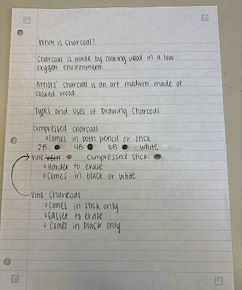 What is Charcoal?
Charcoal is made by cooking wood in a low
oxygen environment.
Artists' charcoal is an art medium made of
cooked wood.
Types and Uses of Drawing Charcoal
Compressed Charcoal
Comes in both pencil or stick
2B: 4B 6B white
Vine compressed stick:
Harder to erase
Comes in black or white
Vine Charcoal
Comes in stick only
Easier to erase
Comes in black only